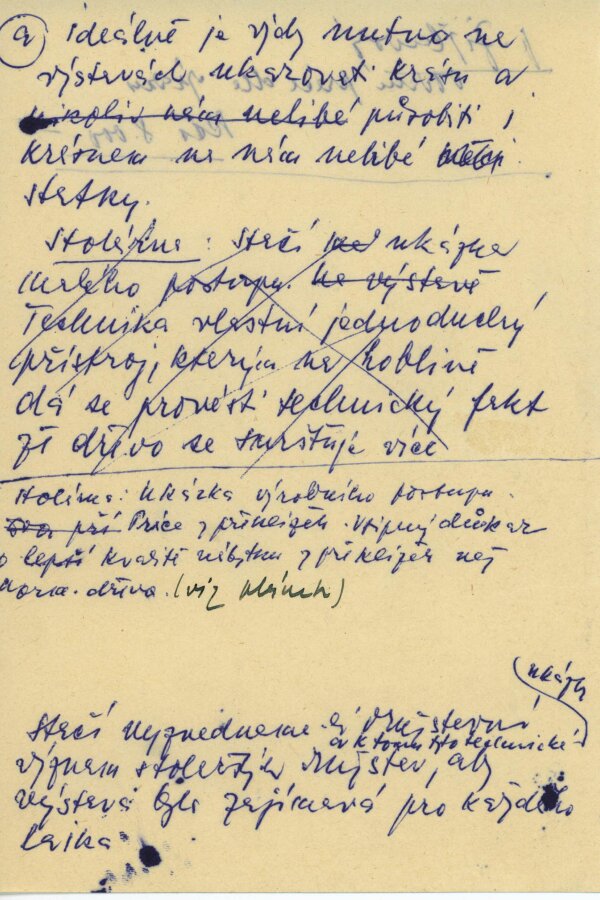 a) ideálně je vždy nutno na
výstavách ukazovati krásu a
nikoliv nám nelibé působiti
krásnem na nám nelibé
statky.
Stolárna: stačí ukázka
malého postupu. na výstavě
Technika vlastní jednoduchý
přístroj, kterým na hoblině
dá se provésti technický fakt
že dřívo se smršťuje více
stolárna: Ukázka výrobního postupu.
Práce z překližek. Vtipný důkaz
o lepší kvalitě nábytku z překližek než
norm. dříva. (viz plánek)
ukázky
Stačí vyzvedneme-li
a k tomu tyto technické
význam stolařských, aby
výstava byla zajímavá pro každého
laika